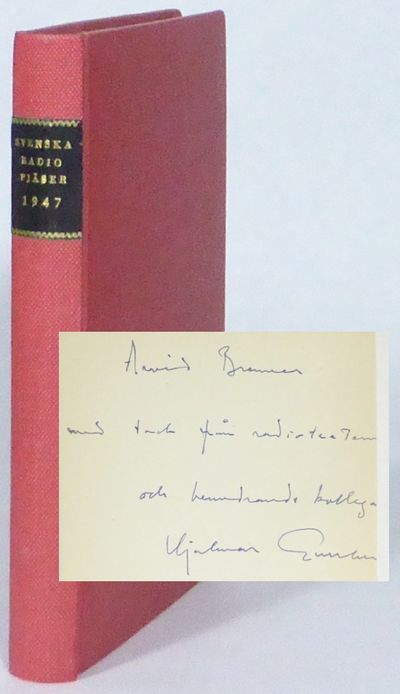 SVENSKA
RADIO
PJÄSER
1947
Arvid Brenner
med tack från radioteatern
och beundrande kollega
Hjalmar Gullberg